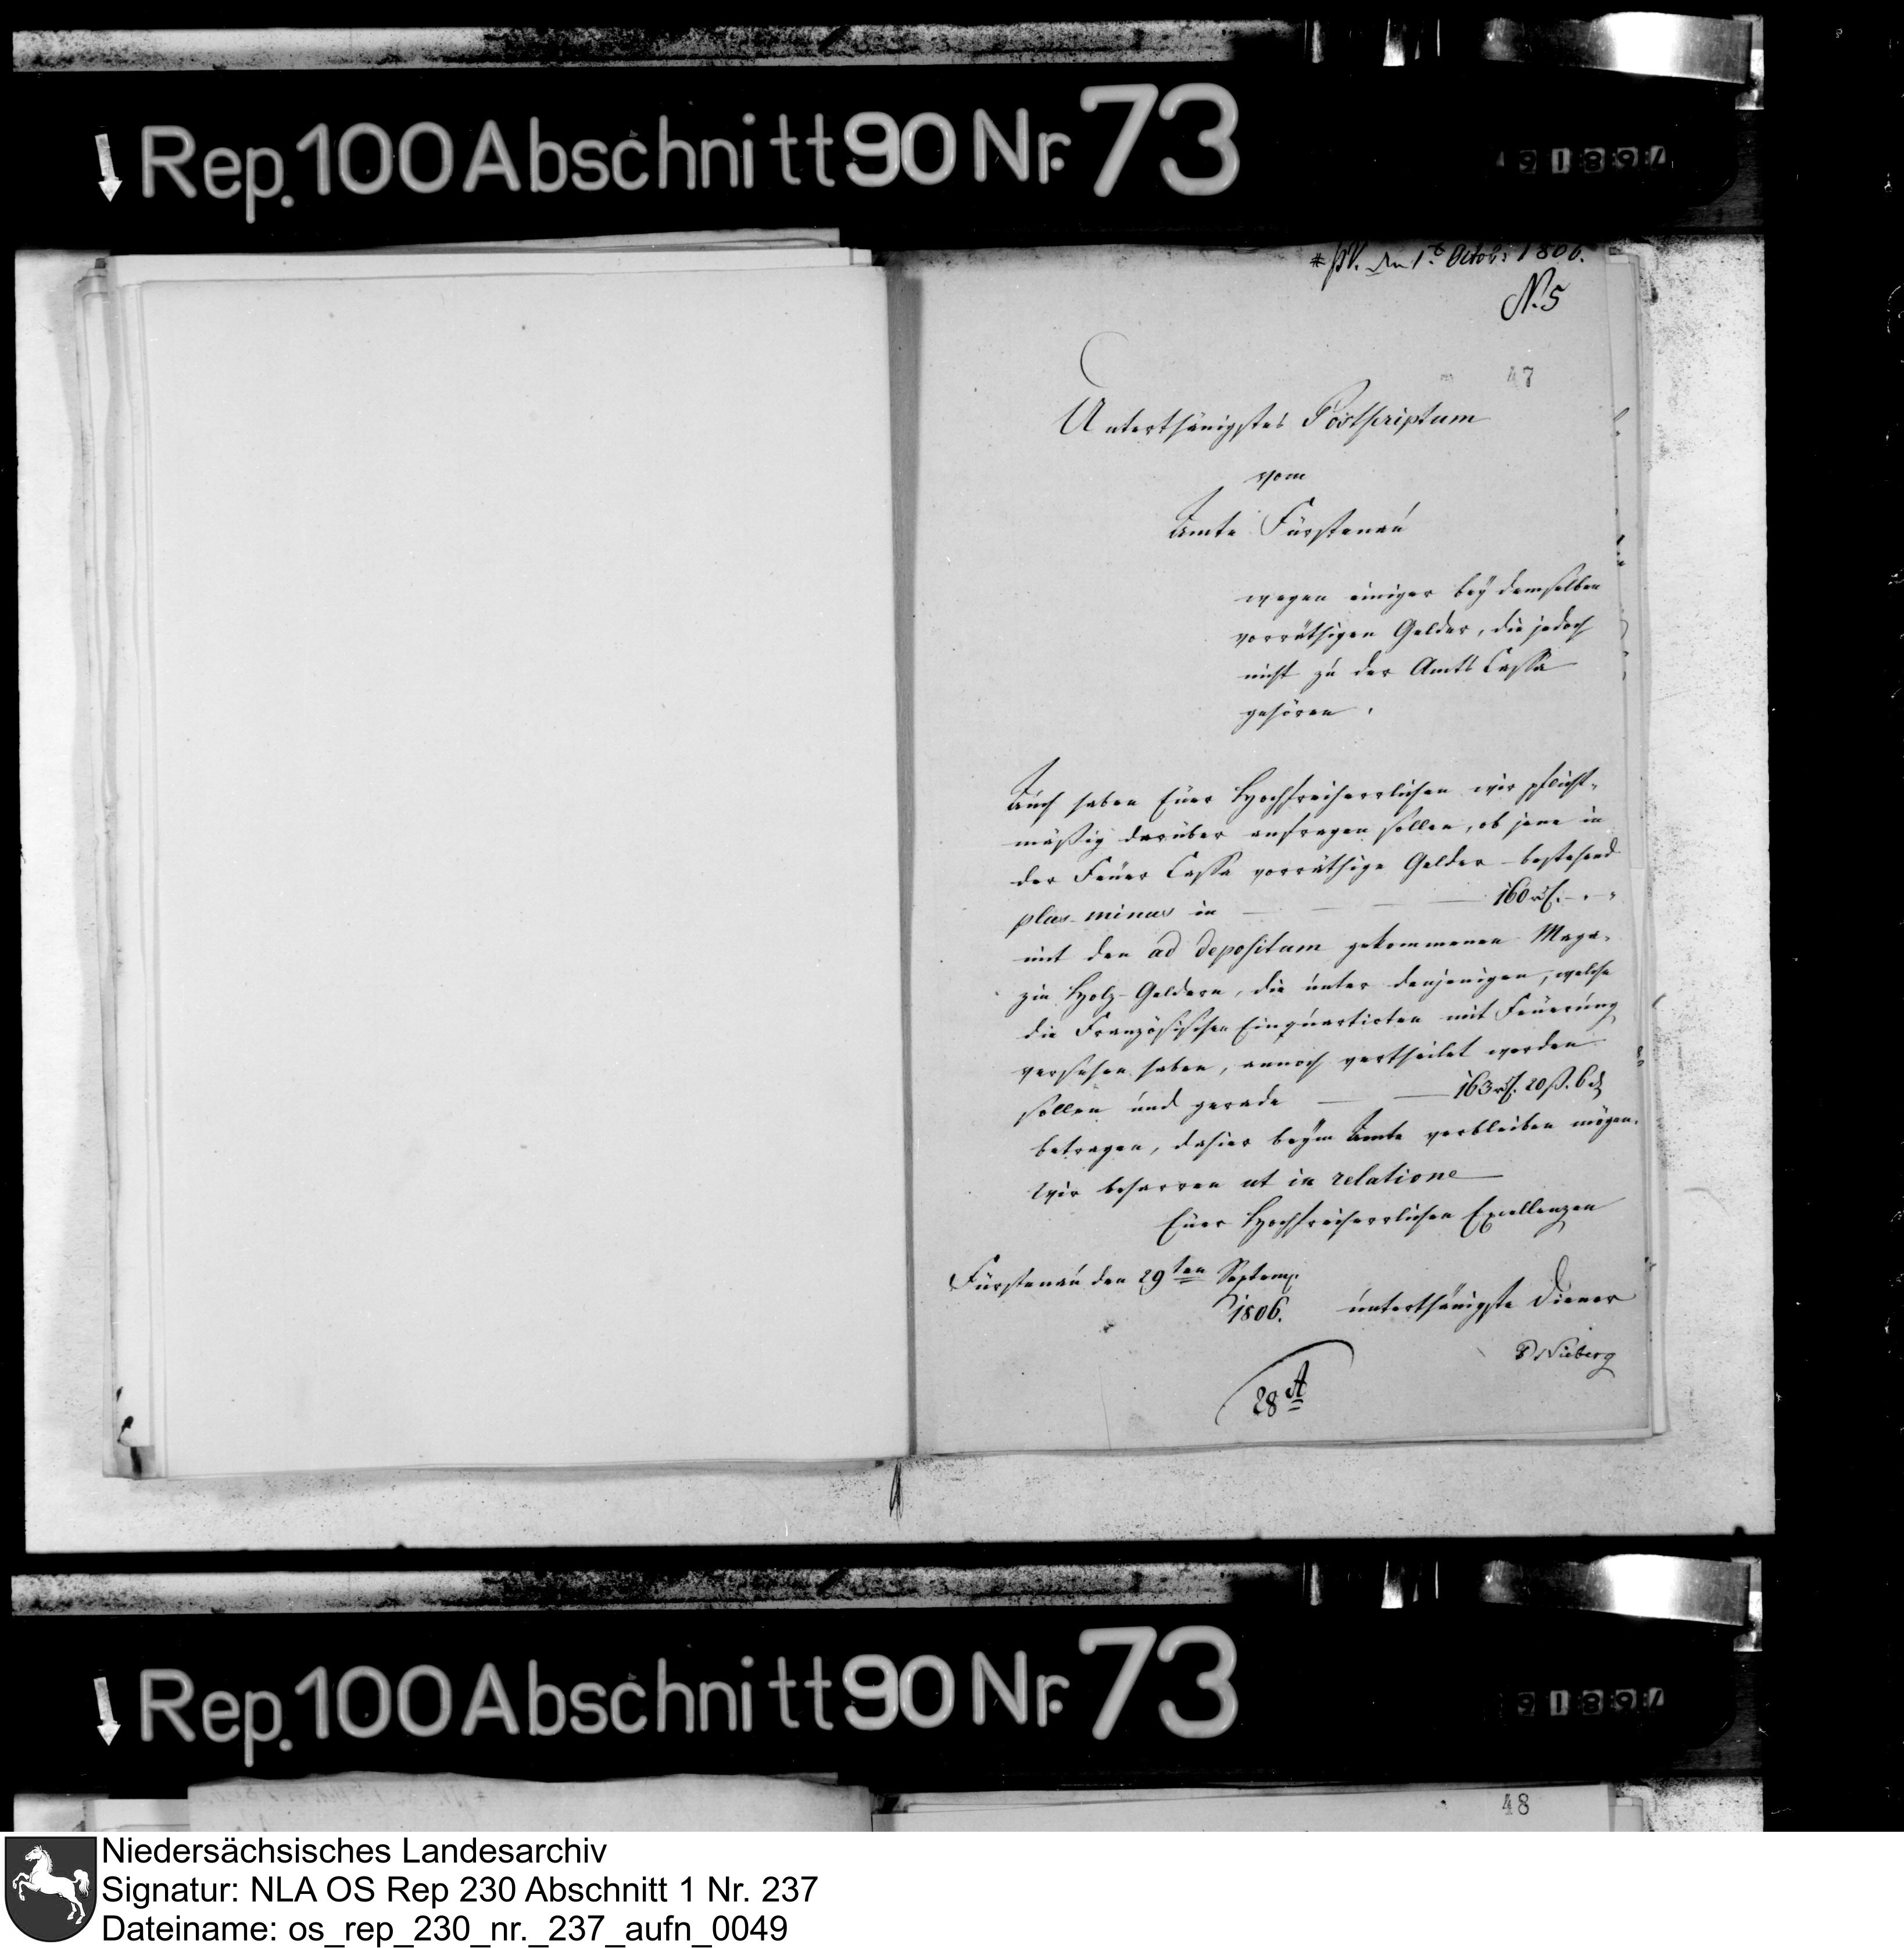 Rep. 100 Abschnitt 90 Nr. 73
91897
den 1. Octob: 1806.
N. 5
47
Unterthänigstes Postscriptum
vom
Amte Fürstenau
wegen einiger bey demselben
vorräthigen Gelder, die jedoch
nicht zu der Amts Cassa
gehören.
Auch haben Euer Hochfreiherrlichen wir pflicht-
mäßig darüber anfragen sollen, ob jene in
der Feuer Cassa vorräthige Gelder bestehend
plus minus in — — — — 160 rth. - " "
mit den ad depositum gekommenen Maga-
zin Holz-Geldern, die unter denjenigen, welche
die Französischen Einquartirten mit Feuerung
versehen haben, annoch vertheilet werden
sollen und gerade — — 163 rth. 20 ß. 6 d
betragen, dahier beym Amte verbleiben mögen.
Wir beharren ut in relatione
Euer Hochfreiherrlichen Excellenzen
Fürstenau den 29ten Septemb.
1806.
unterthänigste Diener
Nieberg
28 A
Rep. 100 Abschnitt 90 Nr. 73
91897
48
Niedersächsisches Landesarchiv
Signatur: NLA OS Rep 230 Abschnitt 1 Nr. 237
Dateiname: os_rep_230_nr._237_aufn_0049